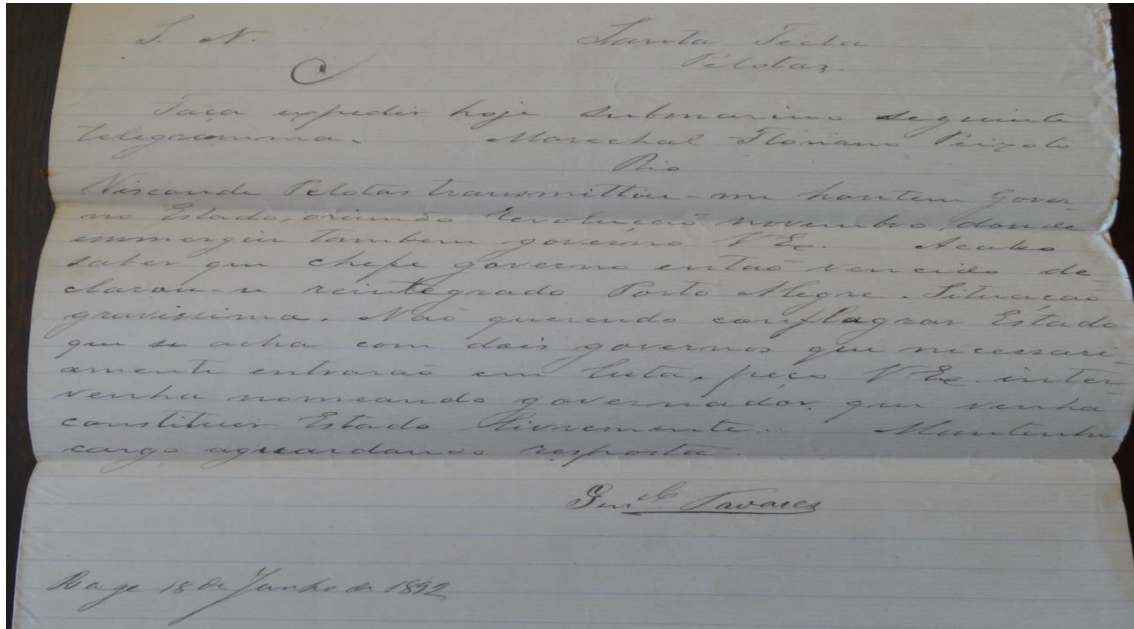 S. N. Santa Tecla
Pelotas.
C
Faça expedir hoje submarino seguinte
telegramma. Marechal Floriano Peixoto
Rio
Visconde Pelotas transmittiu-me hontem Gover-
no Estado, oriundo revolução novembro, donde
emmergiu tambem governo V Ex. Acabo
saber que chefe governo então vencido de
clarou-se reintegrado Porto Alegre. Situação
gravissima. Não querendo conflagrar Estado
que se acha com dois governos que necessari-
amente entrarão em luta, peço V Ex. inter
venha nomeando governador que venha
constituir Estado livremente. Mantenho
cargo aguardando resposta.
Gen. Tavares
Bage 18 de Junho de 1892